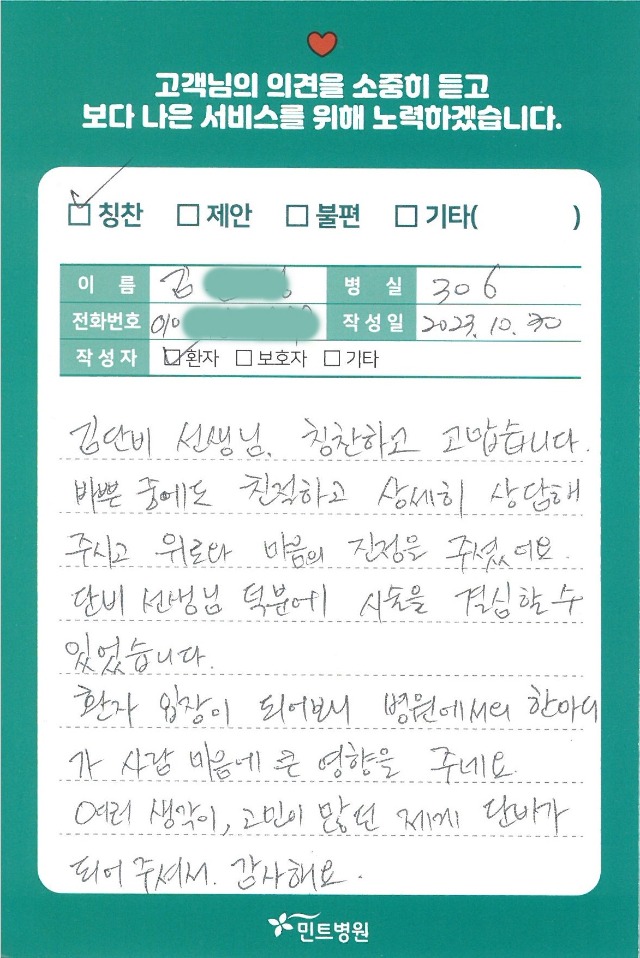 고객님의 의견을 소중히 듣고
보다 나은 서비스를 위해 노력하겠습니다.
칭찬 제안 불편 기타( )
이 름 김 병 실 306
전화번호 010 작성일 2023. 10. 30
작성자 환자 보호자 기타
김단비 선생님. 칭찬하고 고맙습니다.
바쁜 중에도 친절하고 상세히 상담해
주시고 위로와 마음의 진정을 주셨어요.
단비 선생님 덕분에 시술을 결심할 수
있었습니다.
환자 입장이 되어보니 병원에서의 한마디
가 사람 마음에 큰 영향을 주네요
여러 생각이, 고민이 많던 제게 단비가
되어 주셔서. 감사해요.
민트병원